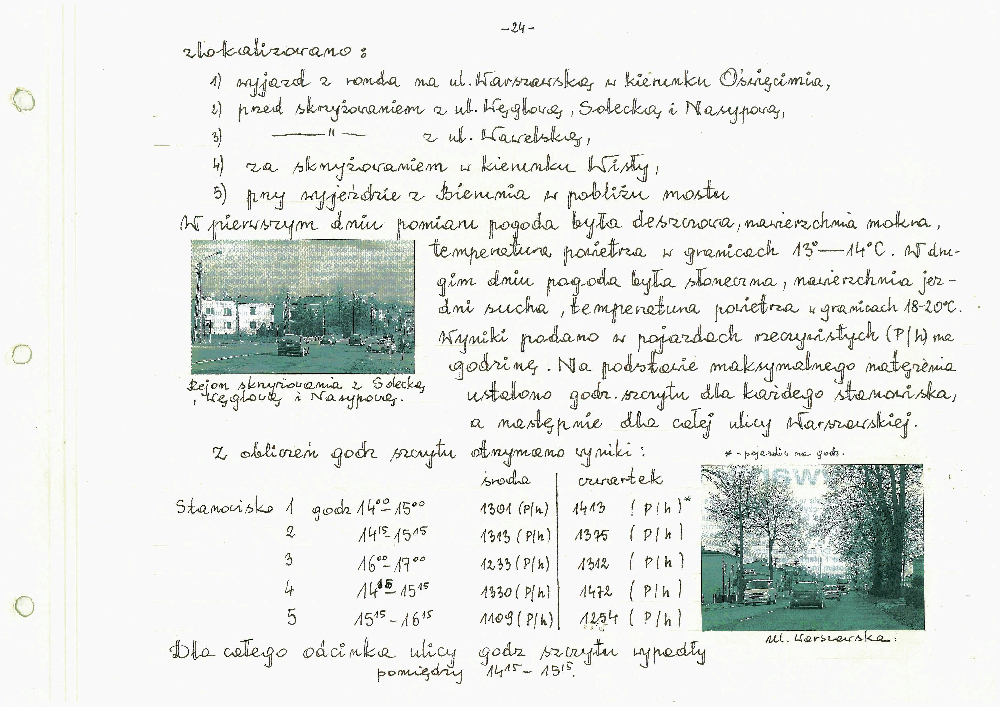 -24-
zlokalizowano :
1) wyjazd z ronda na ul. Warszawską w kierunku Oświęcimia,
2) przed skrzyżowaniem z ul. Węglową, Solecką i Nasypową,
3) —— " —— z ul. Wawelską,
4) za skrzyżowaniem w kierunku Wisły,
5) przy wyjeździe z Bierunia w pobliżu mostu
W pierwszym dniu pomiaru pogoda była deszczowa, nawierzchnia mokra,
temperatura powietrza w granicach 13° — 14°C. W dru-
gim dniu pogoda była słoneczna, nawierzchnia jez-
dni sucha, temperatura powietrza w granicach 18-20°C.
Wyniki podano w pojazdach rzeczywistych (P/h) na
godzinę. Na podstawie maksymalnego natężenia
ustalono godz. szczytu dla każdego stanowiska,
a następnie dla całej ulicy Warszawskiej.
Rejon skrzyżowania z Solecką
, Węglową i Nasypową.
Z obliczeń godz szczytu otrzymano wyniki :
* - pojazdów na godz.
środa czwartek
Stanowisko 1 godz 14⁰⁰-15⁰⁰ 1301 (P/h) 1413 (P/h)*
2 14¹⁵-15¹⁵ 1313 (P/h) 1375 (P/h)
3 16⁰⁰-17⁰⁰ 1233 (P/h) 1312 (P/h)
4 14¹⁵-15¹⁵ 1330 (P/h) 1472 (P/h)
5 15¹⁵-16¹⁵ 1109 (P/h) 1254 (P/h)
ul. Warszawska.
Dla całego odcinka ulicy godz szczytu wypadły
pomiędzy 14¹⁵ - 15¹⁵.